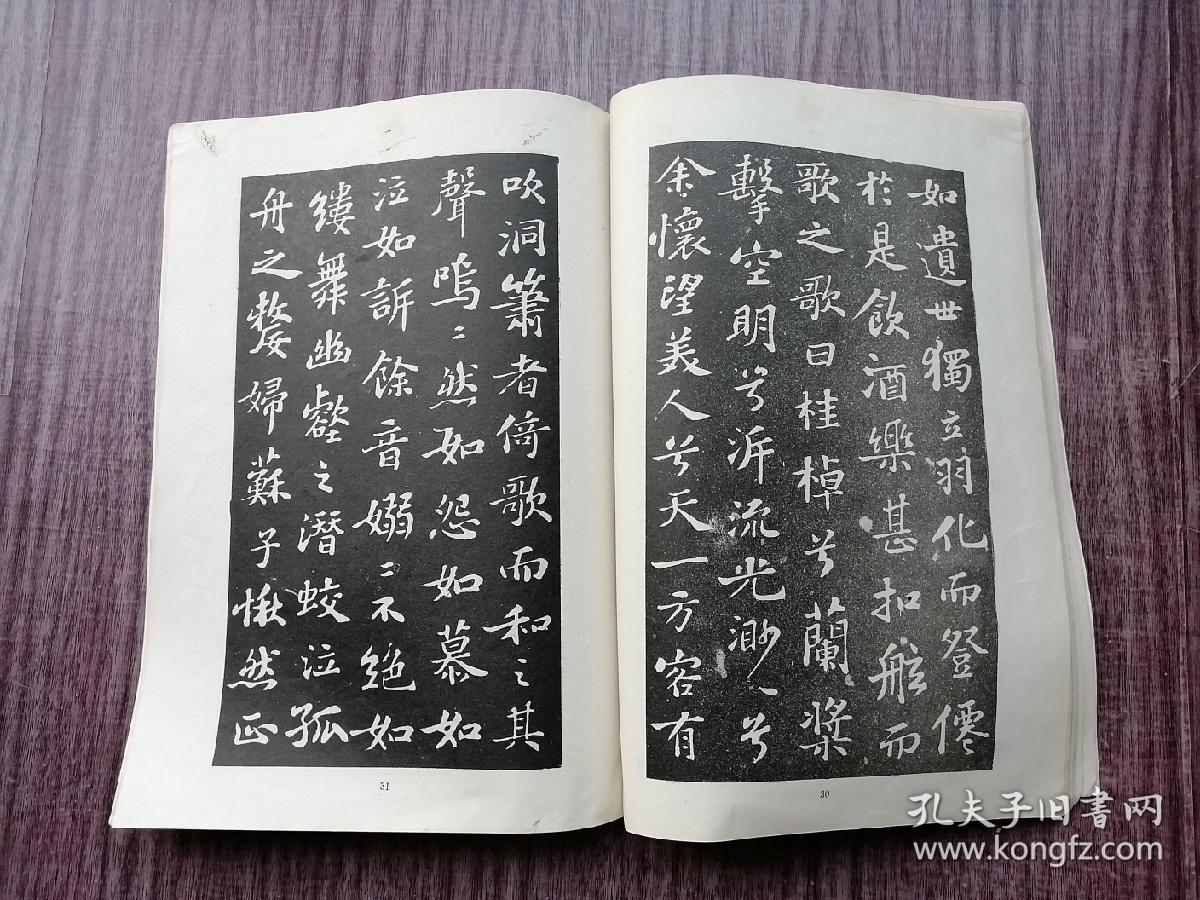 如遺世獨立羽化而登僊
於是飲酒樂甚扣舷而
歌之歌曰桂棹兮蘭槳
擊空明兮泝流光渺〻兮
余懷望美人兮天一方客有
30
吹洞簫者倚歌而和之其
聲嗚〻然如怨如慕如
泣如訴餘音嫋〻不絕如
縷舞幽壑之潛蛟泣孤
舟之嫠婦蘇子愀然正
31
孔夫子旧書网
www.kongfz.com